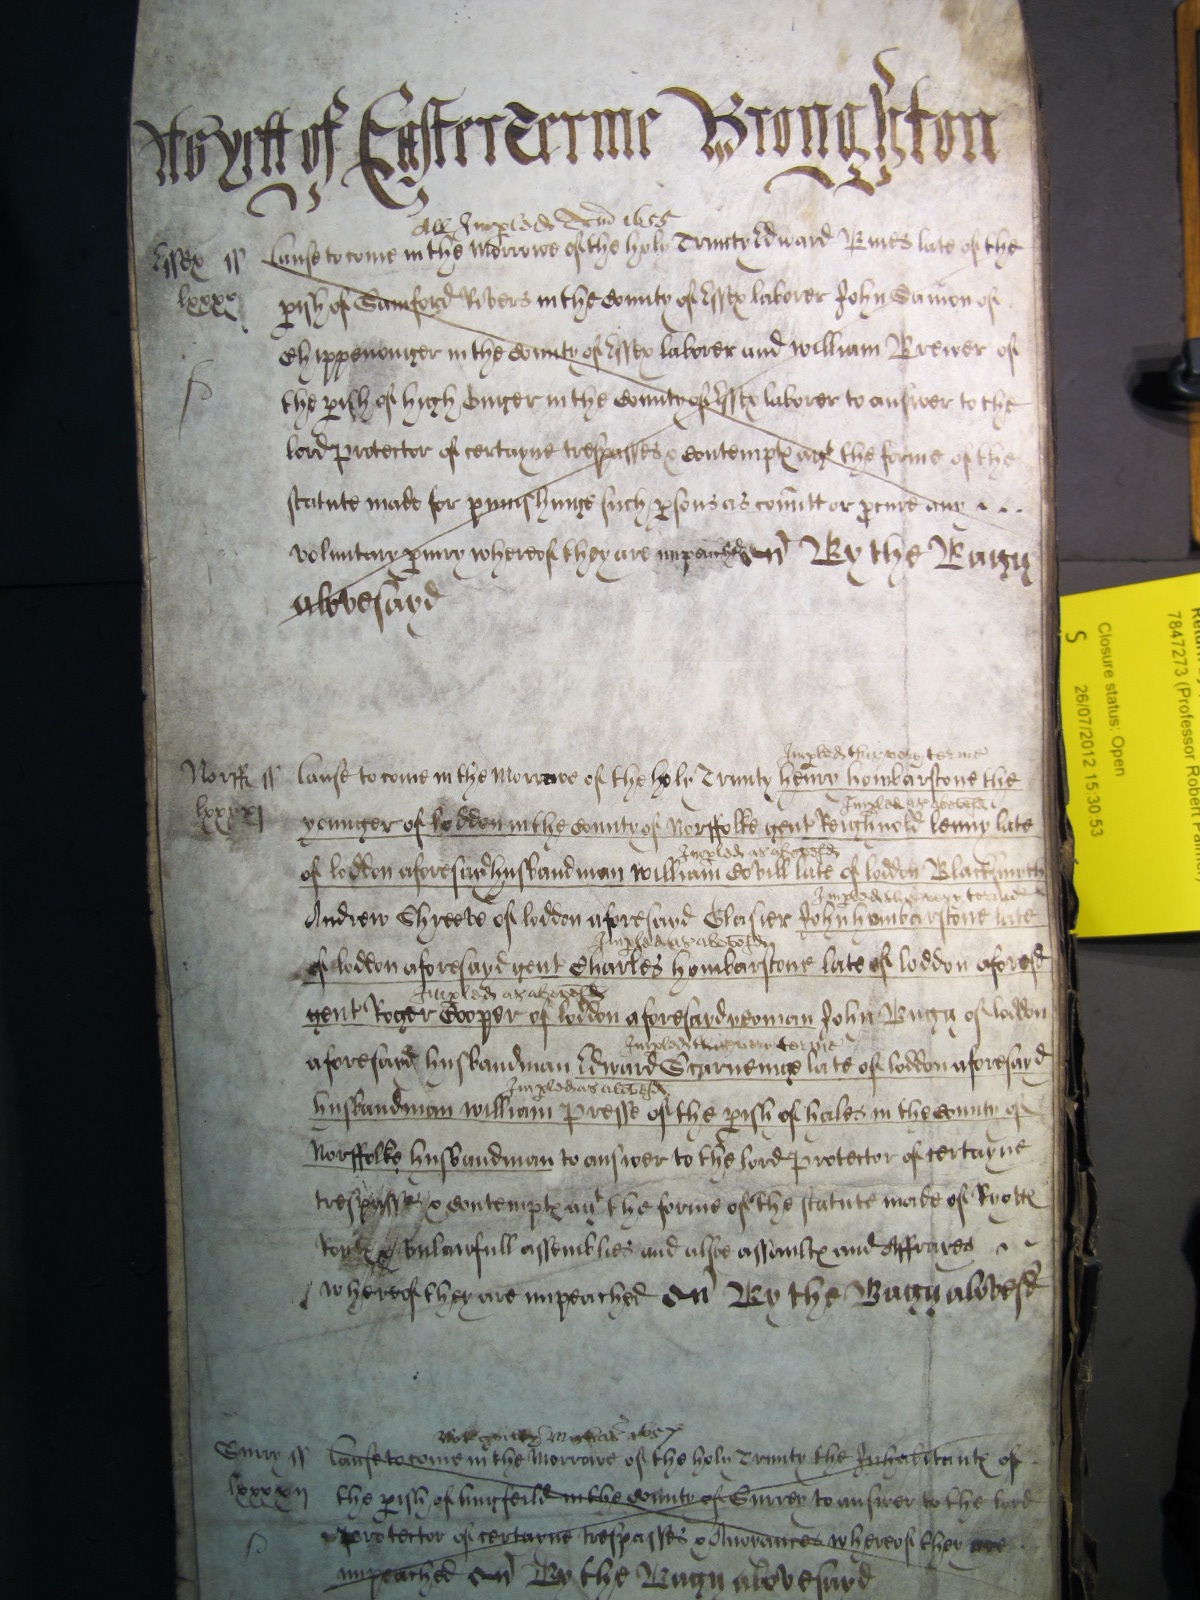 As yett of Easter Terme Broughton
All Impleded Trin 1655
Essex ss Cause to come in the Morrowe of the holy Trinity Edward Bines late of the
lxxxx
pish of Stanford Rivers in the County of Essex laborer John Samon of
Chippenonger in the County of Essex laborer and William Brewer of
the pish of high Onger in the County of Essex laborer to answer to the
lord Protector of certayne trespasses & Contempts agt the forme of the
statute made for punishinge such psons as comitt or pcure any
voluntary piury whereof they are impeached By the Bagg
abovesayd
Impleds this very terme
Norff ss Cause to come in the Morrowe of the holy Trinity henry hombarstone the
lxxxxj
Impleds as abovesd
younger of loddon in the County of Norffolke gent Reighnold lenny late
Impleds as abovesd
of loddon aforesayd husbandman William Covill late of loddon Blacksmyth
Impleds this very terme
Andrew Shreeve of loddon aforesayd Glasier John hombarstone late
Impleds as abovesd
of loddon aforesayd gent Charles hombarstone late of loddon aforesd
Impleds as abovesd
gent Roger Cooper of loddon aforesayd yeoman John Bugg of loddon
Impleds this very terme
aforesayd husbandman Edward Starnemge late of loddon aforesayd
Impleds as abovesd
husbandman William Presse of the pish of hales in the County of
Norffolke husbandman to answer to the lord Protector of certayne
trespasses & Contempts agt the forme of the statute made of Ryotts
Routs & Unlawfull assemblies and alsoe assaults and Affrayes
whereof they are impeached By the Bagg abovesd
not guilty Michas 1657
Surry ss Cause to come in the Morrowe of the holy Trinity the Inhabitants of
lxxxxij
the pish of lingfeild in the County of Surrey to answer to the lord
Protector of certayne trespasses & Anoyances whereof they are
impeached By the Bagg abovesayd
7847273 (Professor Robert Palmer)
Closure status: Open
S 26/07/2012 15:30:53